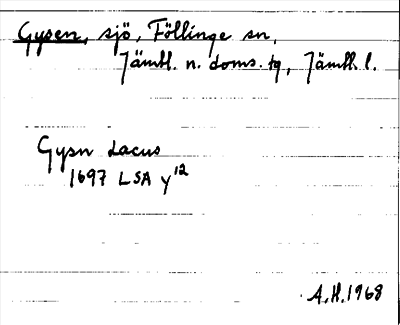 Gysen, sjö, Föllinge sn,
Jämtl. n. doms. tg, Jämtl. l.
Gysn Lacus
1697 LSA y12
A.H. 1968